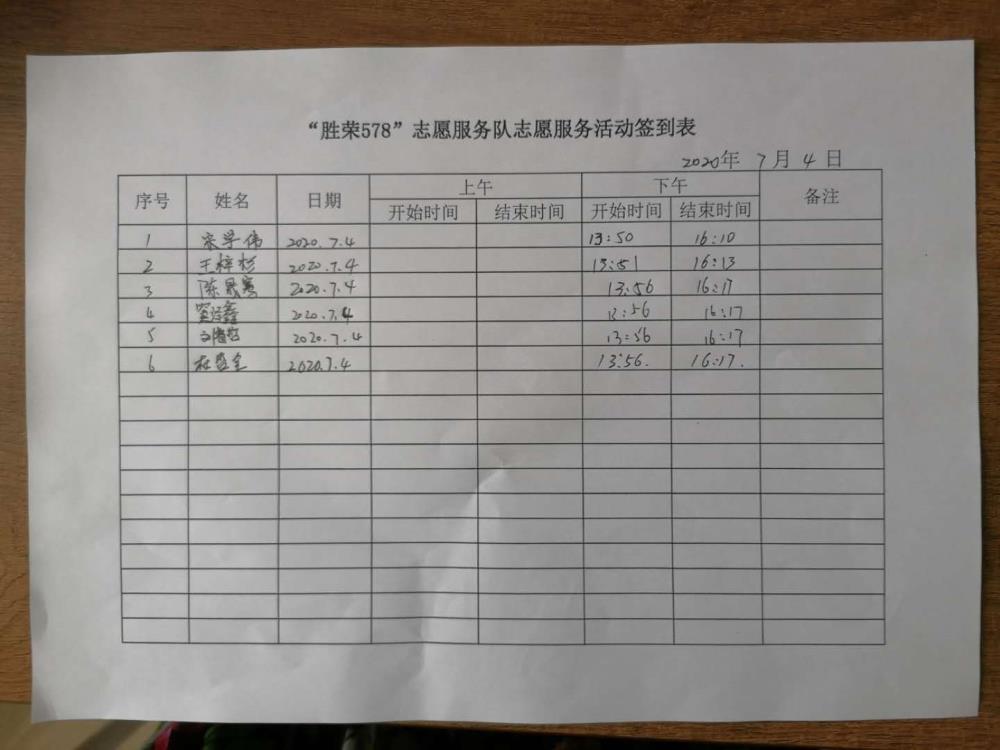 “胜荣578”志愿服务队志愿服务活动签到表
2020年 7月 4日
序号 姓名 日期 上午 下午 备注
开始时间 结束时间 开始时间 结束时间
1 宋学伟 2020.7.4 13:50 16:10
2 王梓杉 2020.7.4 13:51 16:13
3 2020.7.4 13:56 16:17
4 2020.7.4 13:56 16:17
5 2020.7.4 13:56 16:17
6 2020.7.4 13:56. 16:17.